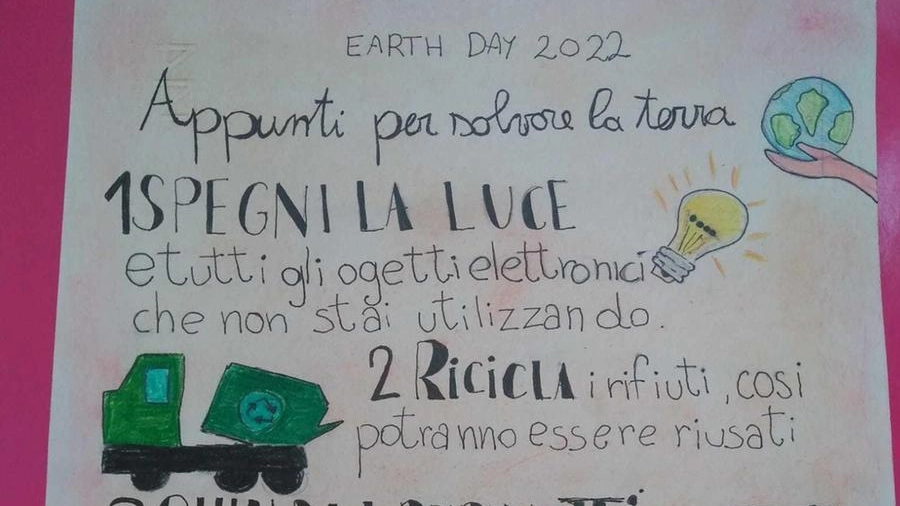 EARTH DAY 2022
Appunti per salvare la terra
1 SPEGNI LA LUCE
e tutti gli ogetti elettronici
che non stai utilizzando.
2 RICICLA i rifiuti, cosi
potranno essere riusati